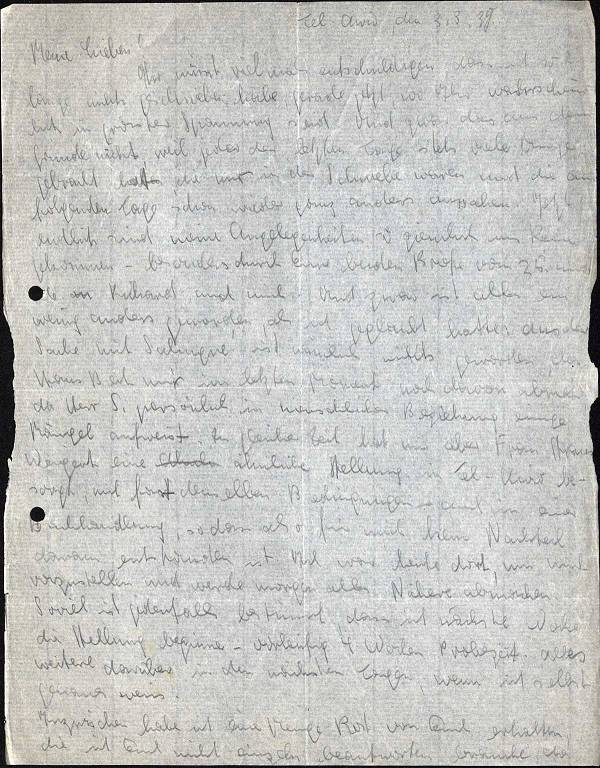 Tel Aviv, den 3.3.39.
Meine Lieben!
Ihr müsst vielmals entschuldigen, dass ich so
lange nichts geschrieben habe gerade jetzt, wo Ihr wahrschein-
lich in grösster Spannung seid. Und zwar das aus dem
Grunde nicht, weil jeder der letzten Tage stets viele Dinge
gebracht hat, die in der Schwebe waren und die am
folgenden Tage schon wieder ganz anders aussahen. Jetzt
endlich sind meine Angelegenheiten so ziemlich ins Reine
gekommen - besonders durch Eure beiden Briefe vom 26. und
an Richard und mich. Und zwar ist alles ein
wenig anders geworden, als ich geglaubt hatte; aus der
Sache mit ist nämlich nichts geworden, da
mir im letzten Moment noch davon abriet,
da Herr S. persönlich in menschlicher Beziehung einige
Mängel aufweist. Zu gleicher Zeit hat mir aber Frau
eine ähnliche Stellung in Tel-Aviv be-
sorgt, mit fast denselben Bedingungen - auch in einer
Buchhandlung, sodass also für mich kein Nachteil
daraus entstanden ist. Ich war heute dort, um mich
vorzustellen und werde morgen alles Nähere abmachen.
Soviel ist jedenfalls bestimmt, dass ich nächste Woche
die Stellung beginne - vorläufig 4 Wochen Probezeit. Alles
weitere darüber in den nächsten Tagen, wenn ich selbst
genaues weiss.
Inzwischen habe ich eine Menge Post von Euch erhalten,
die ich Euch nicht einzeln beantworten brauche, da